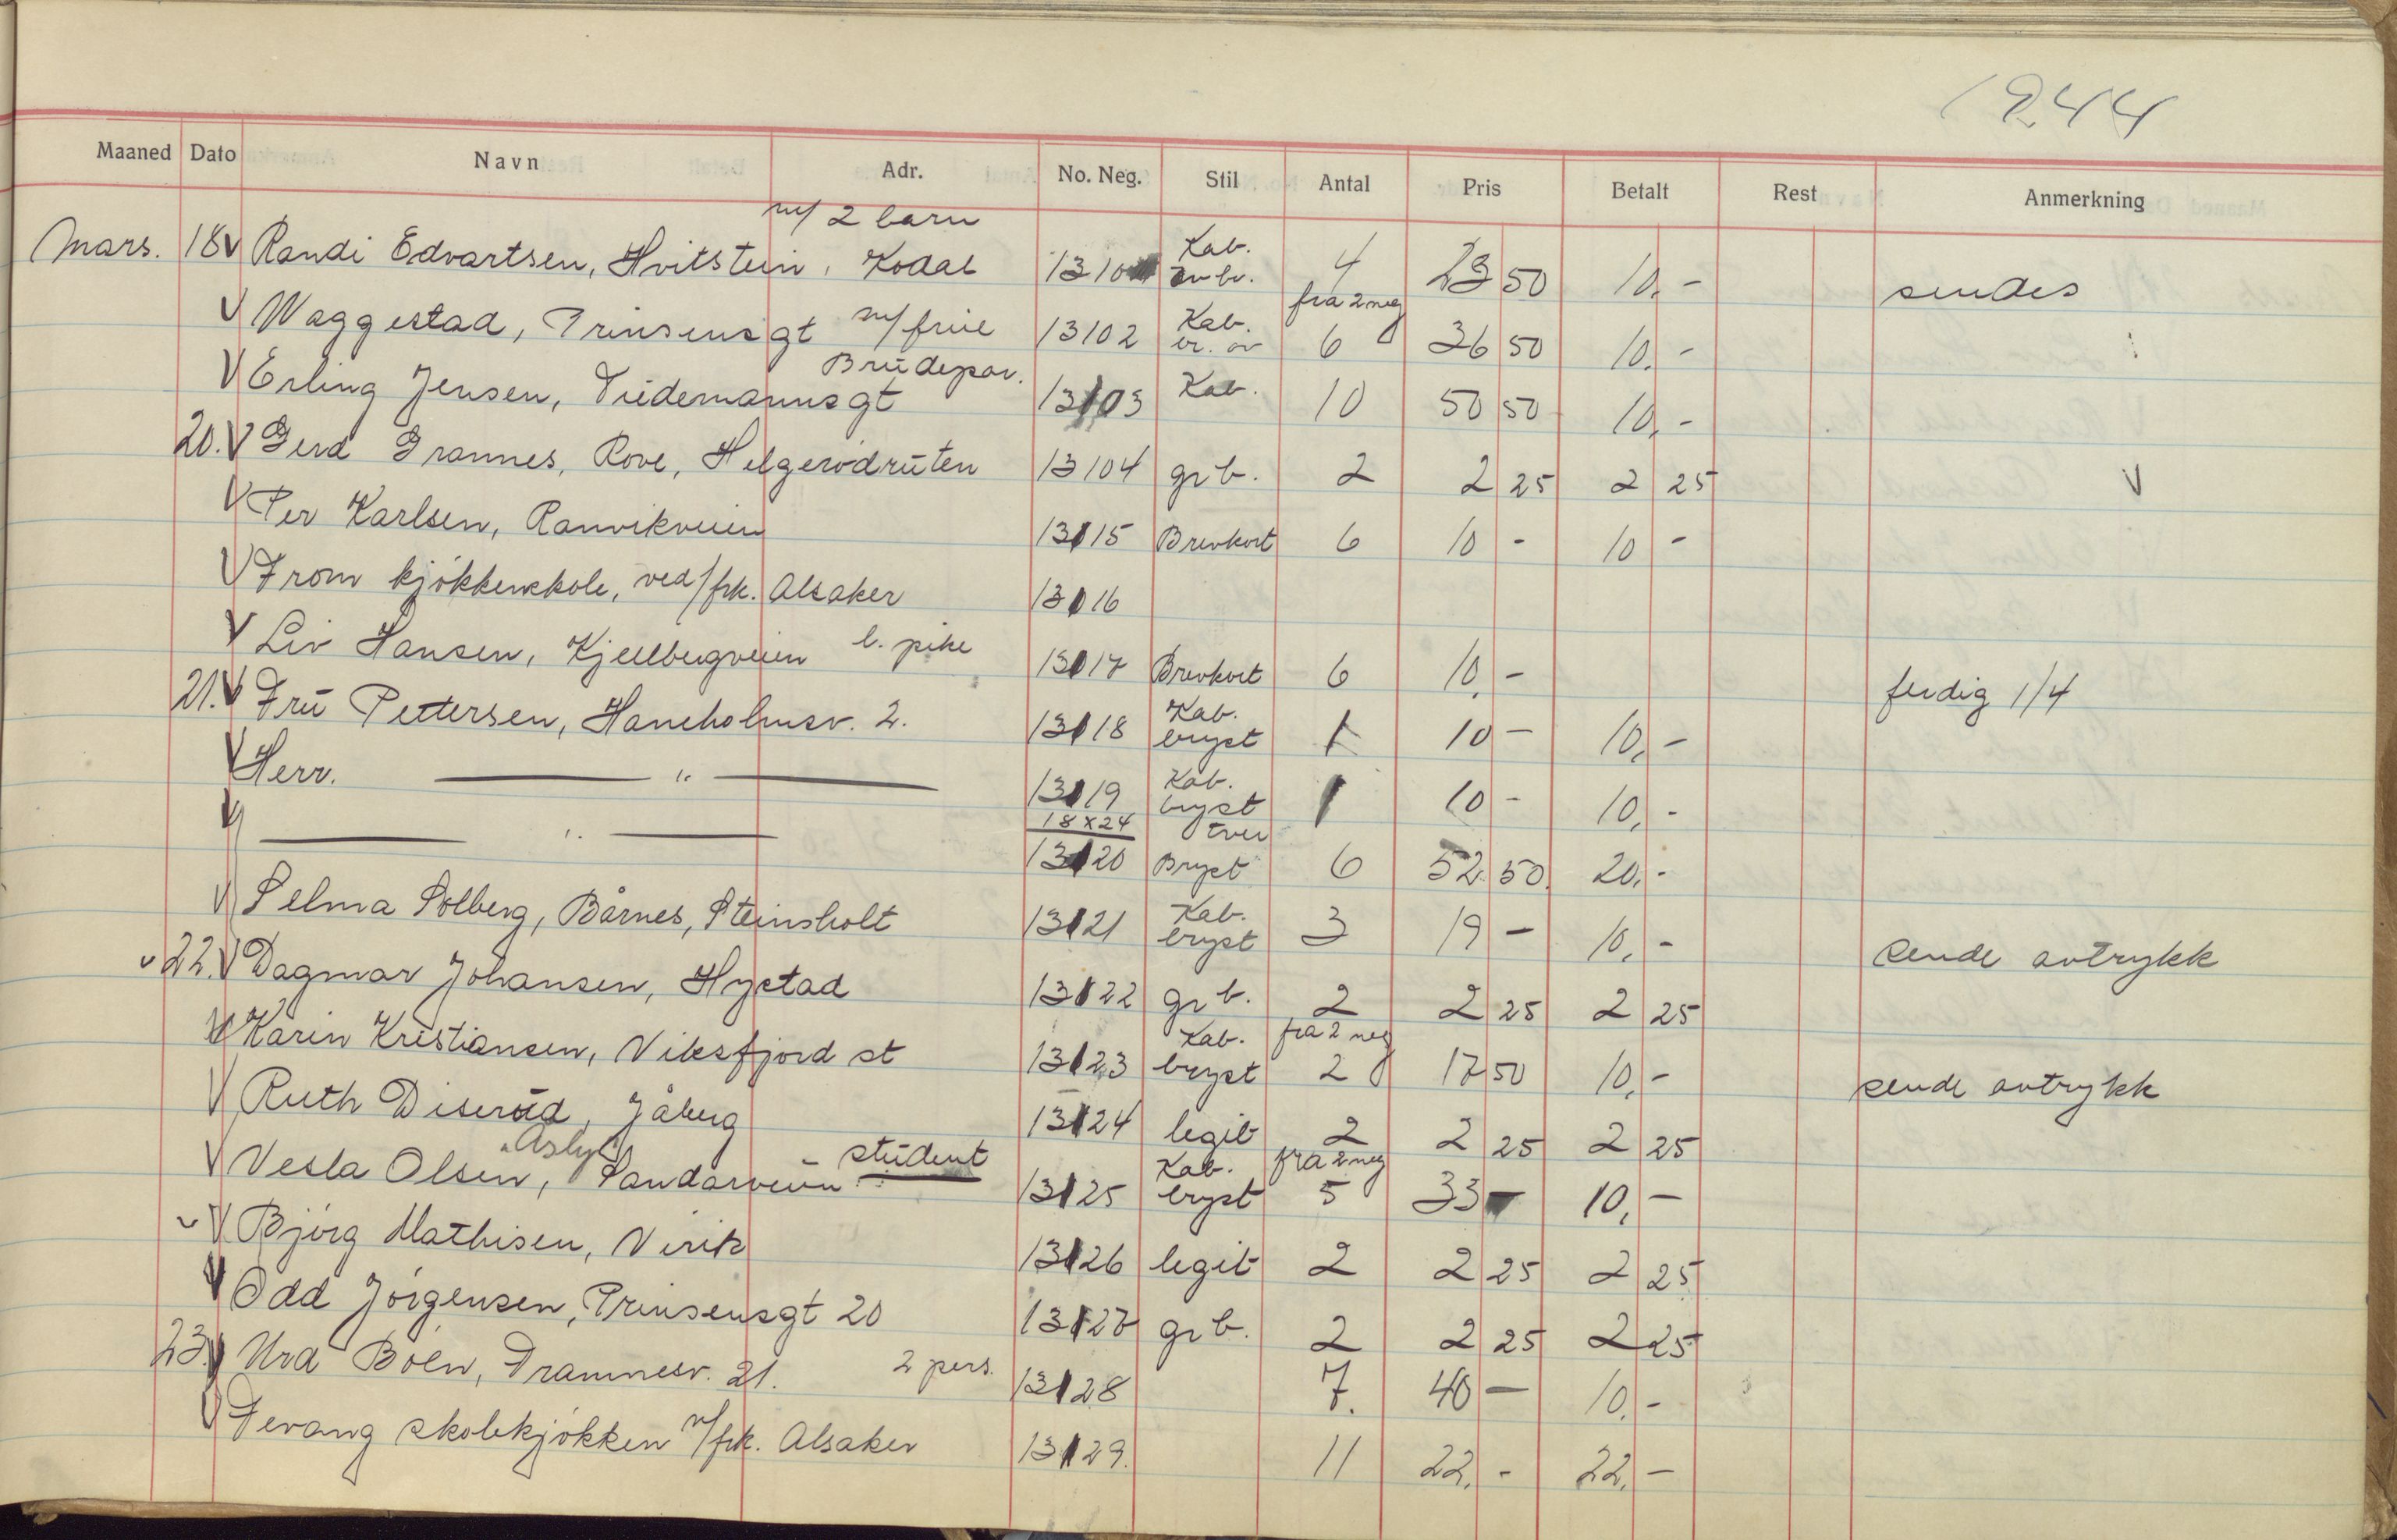 1944
Maaned Dato Navn Adr. No. Neg. Stil Antal Pris Betalt Rest Anmerkning
m/ 2 barn
Mars. 18 V Randi Edvartsen, Hvitstein, Kodal 13101 Kab. 4 23 50 10,- sendes
V Waggestad, Prinsensgt m/frue 13102 Kab. fra 2 neg 6 36 50 10.-
V Erling Jensen, Tidemannsgt Brudepar. 13103 Kab. 10 50 50 10,-
20. V Gerd Grannes, Rove, Helgerødruten 13104 gr b. 2 2 25 2 25 V
V Per Karlsen, Ranvikveien 13115 Brevkort 6 10 - 10 -
V From kjøkkenskole, ved/frk. Alsaker 13116
V Liv Hansen, Kjellbergveien l. pike 13117 Brevkort 6 10,- ferdig 1/4
21. V Fru Pettersen, Haneholmsv. 2. 13118 Kab. bryst 1 10 - 10,-
V Herr. — " — 13119 Kab. bryst 1 10 - 10,-
V — " — 18x24 tver 13120 Bryst 6 52 50 20,-
V Selma Solberg, Bårnes, Steinsholt 13121 Kab. bryst 3 19 - 10,- sende avtrykk
v 22. V Dagmar Johansen, Hystad 13122 gr b. 2 2 25 2 25
V Karin Kristiansen, Viksfjord st 13123 Kab. bryst fra 2 neg 2 17 50 10,- sende avtrykk
V Ruth Diserud, Jåberg 13124 legit 2 2 25 2 25
V Vesla Olsen, "Asly" Sandarveien student 13125 Kab. bryst fra 2 neg 5 33 - 10,-
v V Bjørg Mathisen, Virik 13126 legit 2 2 25 2 25
V Odd Jørgensen, Prinsensgt 20 13127 gr b. 2 2 25 2 25
23. V Urd Boen, Framnesv. 21. 2 pers. 13128 7. 40 - 10.-
V Tevang skolekjøkken v/frk. Alsaker 13129. 11 22,- 22,-